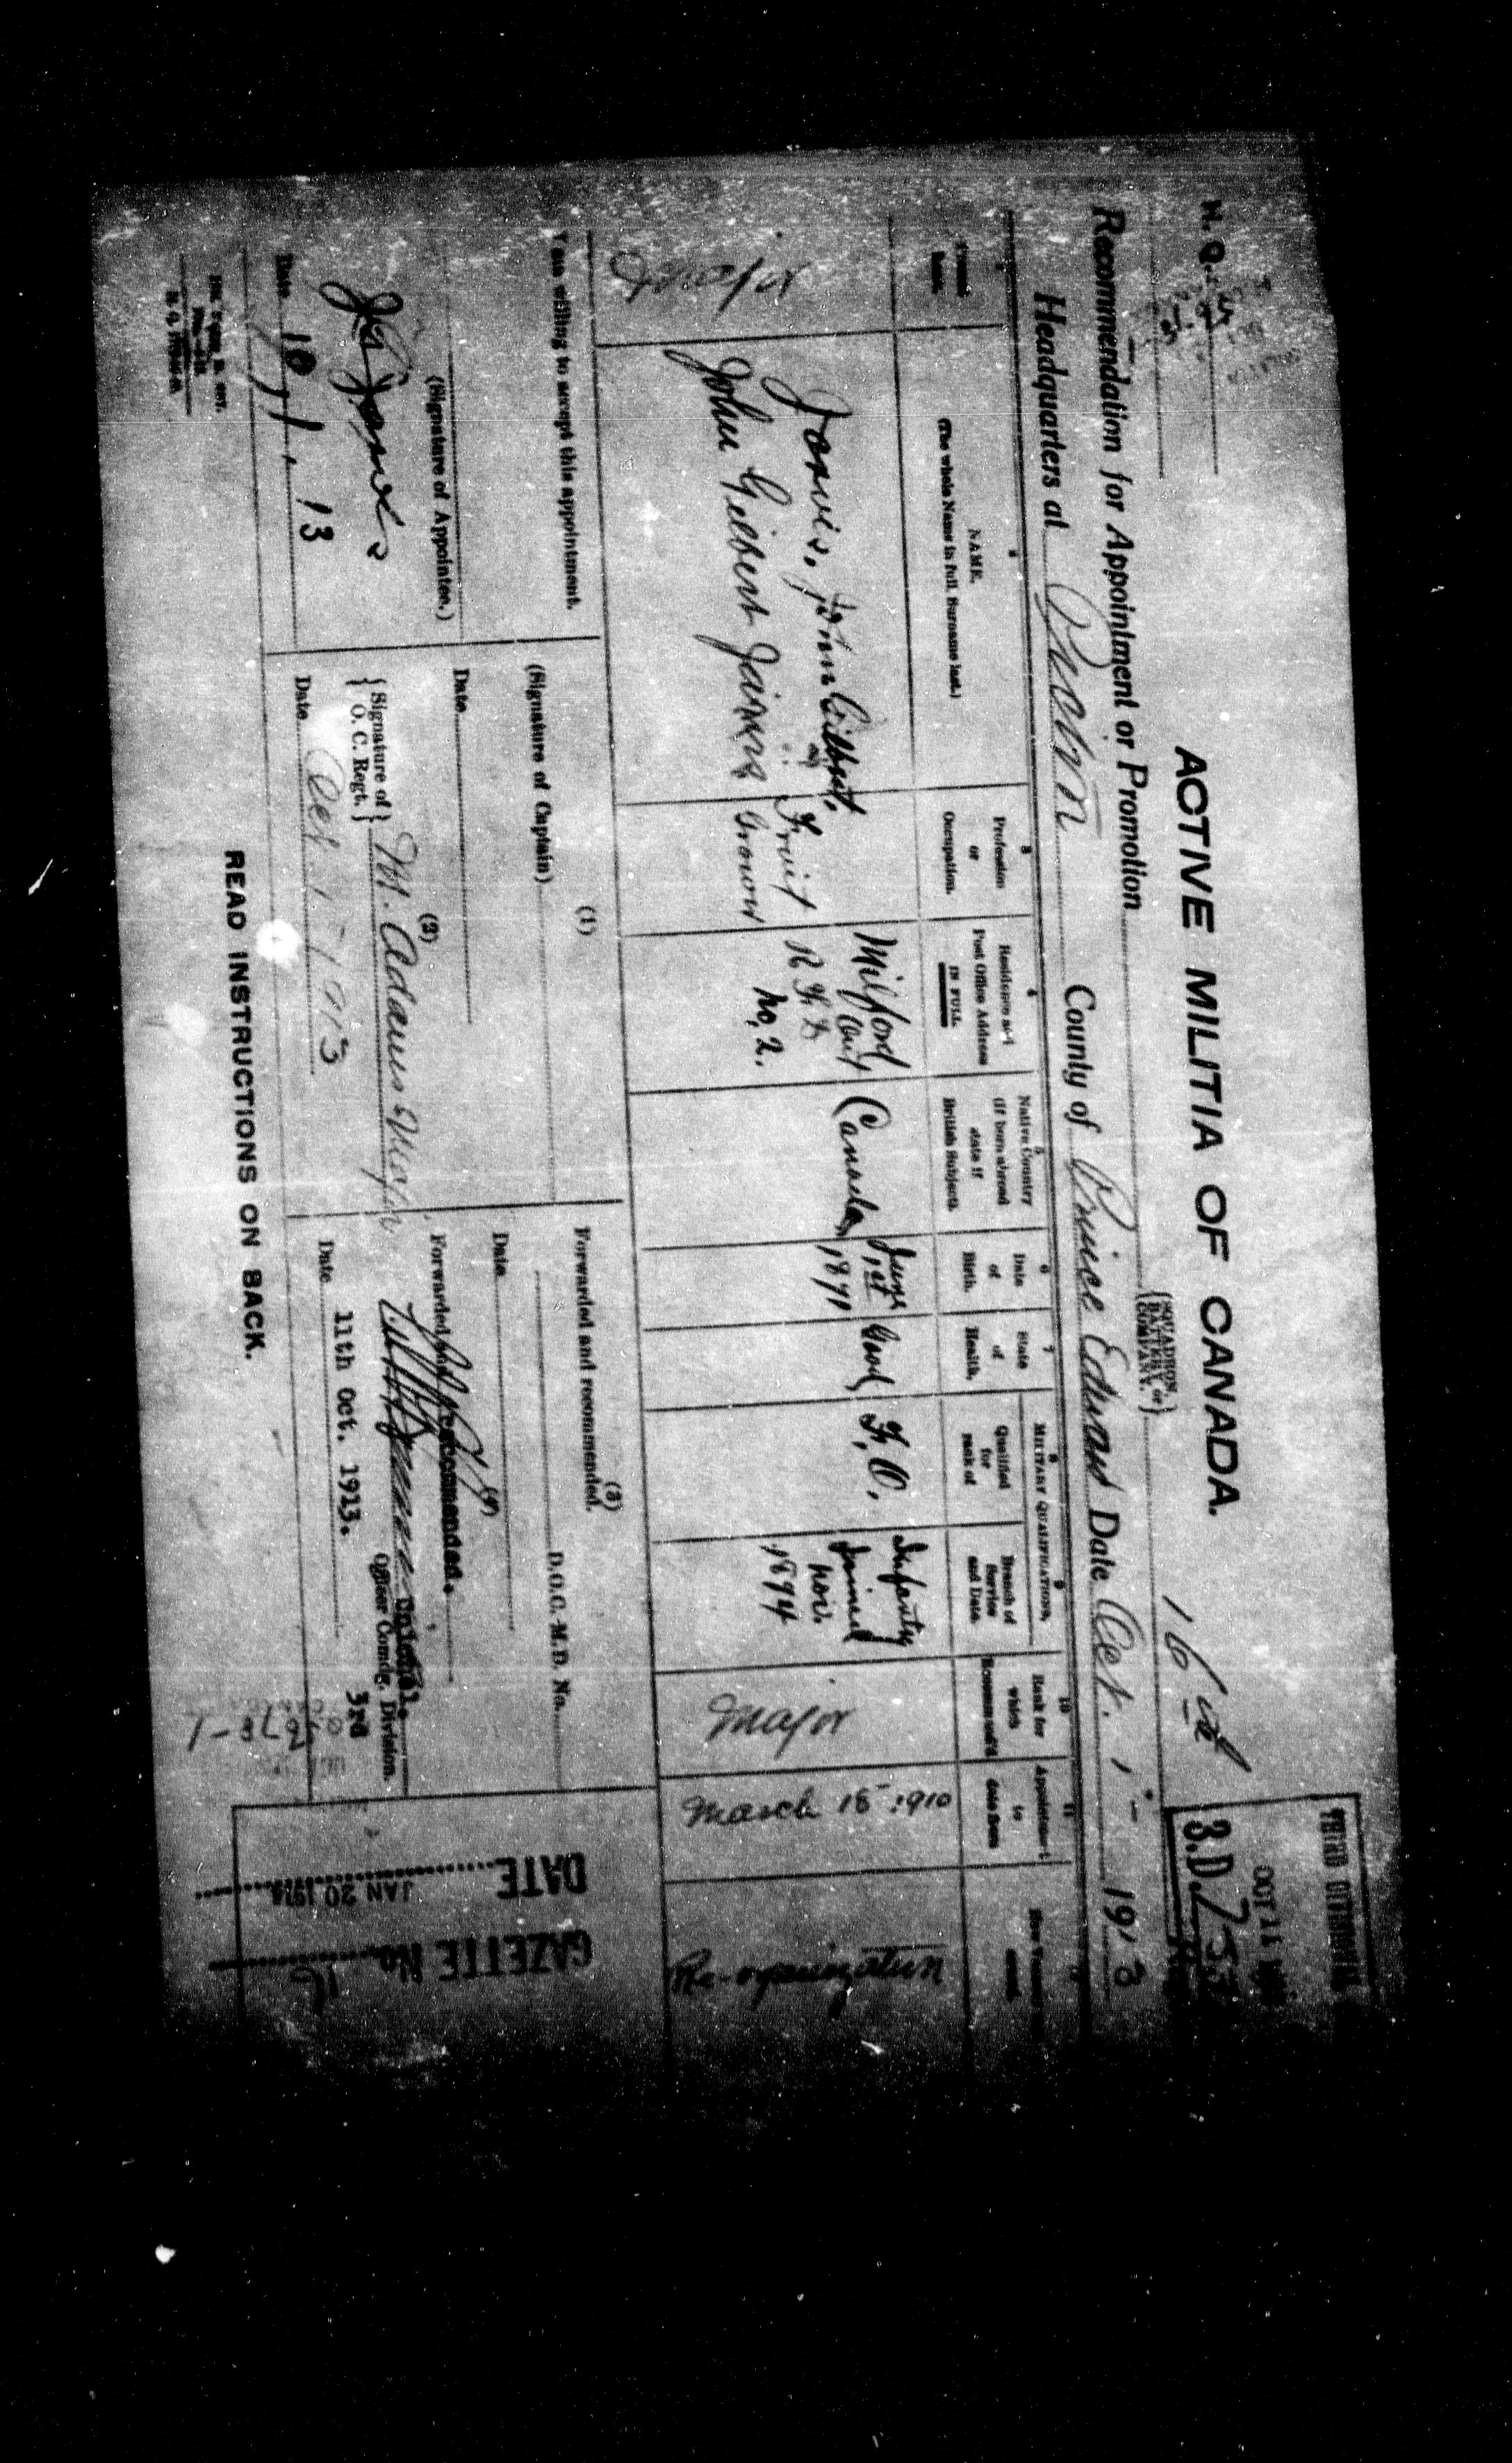 H. Q.
ACTIVE MILITIA OF CANADA.
THIRD DIVISIONAL
OCT 11
3.D.
Recommendation for Appointment or Promotion
{SQUADRON, BATTERY, or COMPANY.}
16th
Headquarters at Picton County of Prince Edward Date Oct. 1 - 1913
Present Rank.
2 NAME.
(The whole Name in full. Surname last.)
3 Profession or Occupation.
4 Residence and Post Office Address IN FULL
5 Native Country (if born abroad state if British Subject)
6 Date of Birth.
7 State of Health.
MILITARY QUALIFICATIONS,
8 Qualified for rank of
9 Branch of Service and Date.
10 Rank for which Recommend'd
11 Appointment to date from
Jarvis, John Gilbert,
John Gilbert Jarvis
Fruit Grower
Milford, Ont
R F D
No, 2.
Canada
June 1st 1871
Good
F, O.
Infantry
Joined
Nov.
1894
Major
March 18 - 1910
Re-organization
I am willing to accept this appointment.
(Signature of Appointee.)
Date 10/1. 13
(1)
(Signature of Captain)
Date
(2)
{Signature of O. C. Regt.} M. Adams Major
Date Oct. 1 - 1913
(3)
Forwarded and recommended.
D.O.C.-M.D. No.
Date
(4)
Forwarded and recommended.
Colonel.
Officer Comdg. 3rd Division.
Date 11th Oct. 1913.
GAZETTE No. 16
DATE JAN 20 1914
READ INSTRUCTIONS ON BACK.